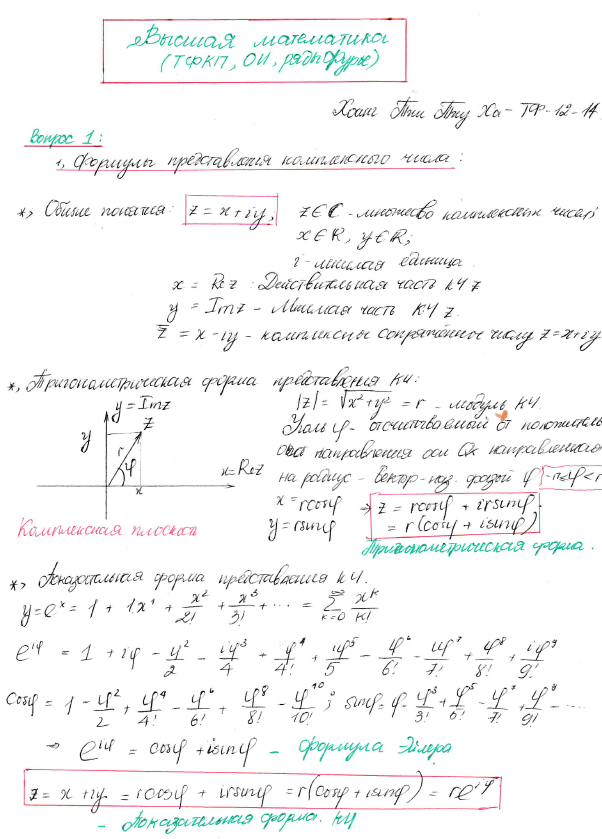 Высшая математика
(ТФКП, ОИ, ряды Фурье)
Хоанг Тхи Тху Ха - ТФ-12-14.
Вопрос 1:
1, Формулы представления комплексного числа:
*, Общие понятия: z = x+iy, z∈C - множество комплексных чисел;
x∈R, y∈R;
i - мнимая единица.
x = Re z : Действительная часть КЧ z
y = Im z - Мнимая часть КЧ z.
z̅ = x-iy - комплексны сопряжённое числу z = x+iy
*, Тригонометрическая форма представления КЧ:
y = Imz
|z| = √x²+y² = r - модуль КЧ.
z
y
r
φ
x
x = Rez
Угол φ - отсчитываемый от положительн
направления оси Ox направленная
на радиус - вектор - наз. фазой φ -π≤φ<π
x = rcosφ ⇒ z = rcosφ + irsinφ
y = rsinφ = r(cosφ + isinφ)
Комплексная плоскость
Тригонометрическая форма.
*, Показательная форма представления КЧ.
y = eˣ = 1 + 1x¹ + x²/2! + x³/3! + ... = ∑ₖ₌₀^∞ xᵏ/k!
e^{iφ} = 1 + iφ - φ²/2 - iφ³/4 + φ⁴/4! + iφ⁵/5 - φ⁶/6! - iφ⁷/7! + φ⁸/8! + iφ⁹/9!
cosφ = 1 - φ²/2 + φ⁴/4! - φ⁶/6! + φ⁸/8! - φ¹⁰/10! ; sinφ = φ - φ³/3! + φ⁵/5! - φ⁷/7! + φ⁹/9! - ...
⇒ e^{iφ} = cosφ + isinφ - формула Эйлера
z = x + iy = rcosφ + irsinφ = r(cosφ + isinφ) = re^{iφ}
- Показательная форма. КЧ